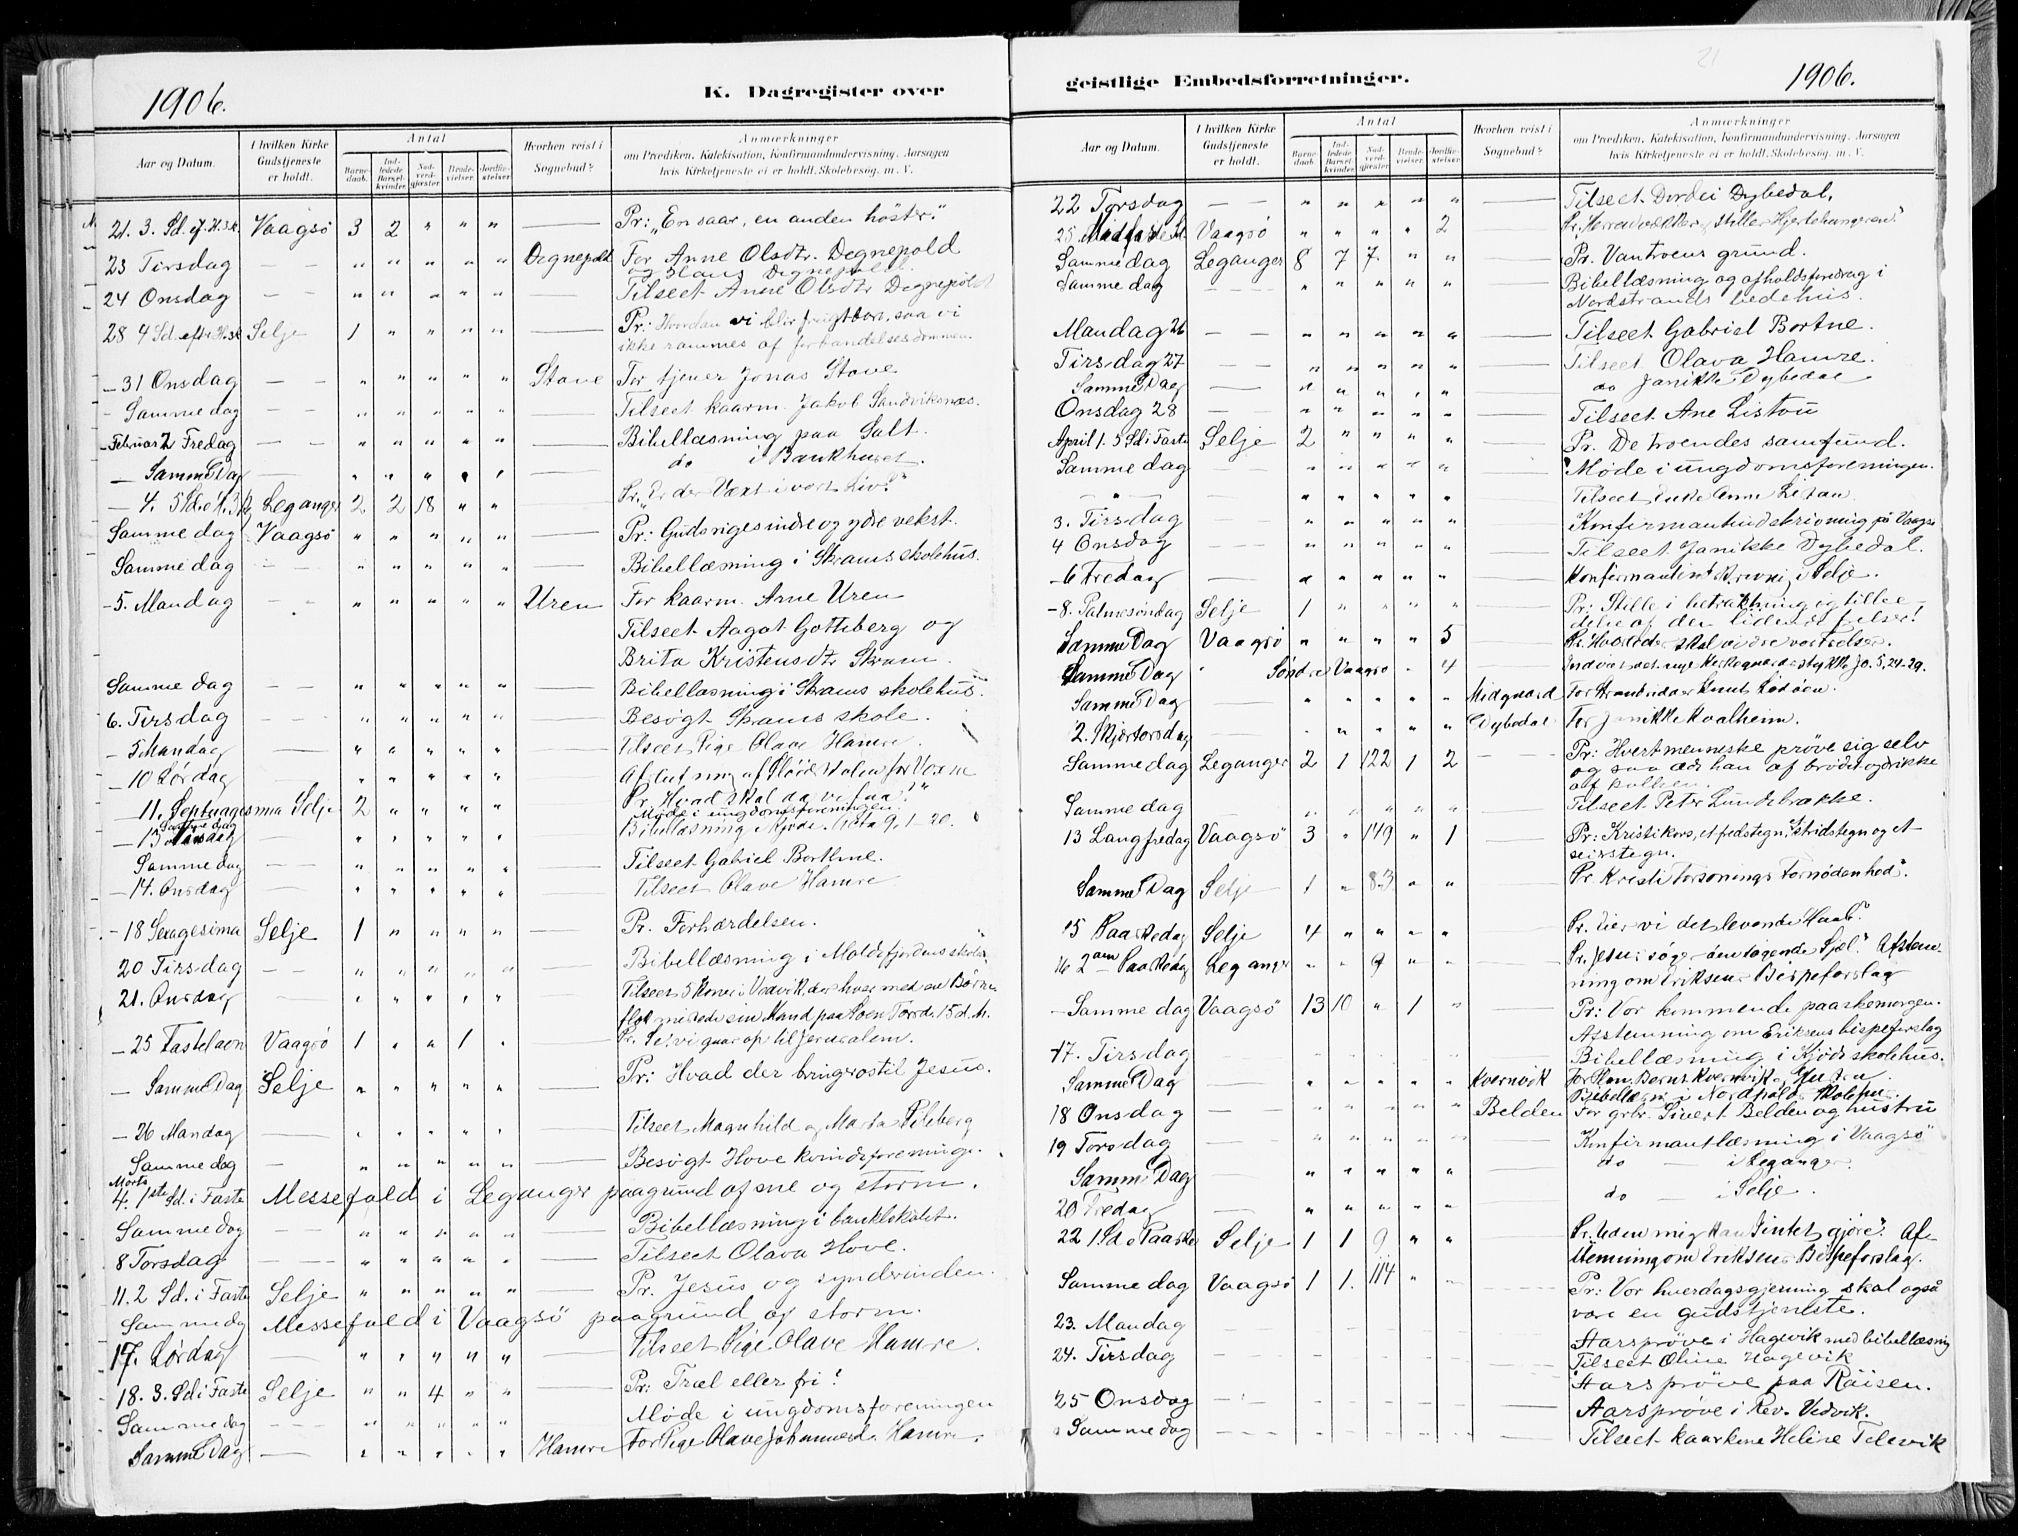 1906.
K. Dagregister over
Aar og Datum.
I hvilken Kirke Gudstjeneste er holdt.
Antal
Barne-daab.
Ind-ledede Barsel-kvinder.
Nad-verd-gjester.
Brude-vielser.
Jordfæ-stelser.
Hvorhen reist i Sognebud?
Anmærkninger
om Prædiken, Katekisation, Konfirmandundervisning, Aarsagen
hvis Kirketjeneste ei er holdt. Skolebesøg. m. V.
21. 3. Sd. ef. H.3.K. Vaagsö 3 2 " " " — Pr: "En saar, en anden höster."
23 Tirsdag — — " " " " " Degnepold For Anne Olsdtr. Degnepold
og Hans Degnepold.
24 Onsdag — — " " " " " — Tilseet Anne Olsdtr Degnepold
28 4 Sd. eftr H.3K Selje 1 " " " " — Pr: Hvordan vi blir frugtbar, saa vi
ikke rammes af forbandelsesdommen.
- 31 Onsdag — — " " " " " Stave For tjener Jonas Stave
- Samme dag — — " " " " " — Tilseet kaarm. Jakob Sandviksnæs.
- Februar 2 Fredag — — " " " " " — Bibellæsning paa Salt.
- Samme Dag — " " " " " — do i Bankhuset.
- 4. 5 Sd. e H. 3 K. Leganger 2 2 18 " " — Pr. "Er der Væxt i vort Liv?"
Samme dag Vaagsö " " " " " — Pr: Gudsriges indre og ydre vekst.
Samme dag — — " " " " " — Bibellæsning i Skrams skolehus.
- 5. Mandag — — " " " " " Uren For kaarm. Arne Uren
Tilseet Aagot Gottberg og
Brita Kristensdtr Skram.
Samme dag — — " " " " " — Bibellæsning i Skrams skolehus.
6. Tirsdag — — " " " " " — Besøgt Skrams skole.
- 5 Mandag — " " " " " — Tilseet Pige Olave Hamre.
- 10 Lördag — " " " " " —
- 11. Septuagesima Selje 2 " " " " — Pr. Hvad skal da vi faa?"
Samme dag Møde i ungdomsforeningen.
- 13 Tirsdag — " " " " " — Bibellæsning i Kjøde. Acta 9, 1-20.
Samme dag — " " " " " — Tilseet Gabriel Borthne.
- 14. Onsdag — " " " " " — Tilseet Olave Hamre
- 18 Sexagesima Selje 1 " " " " — Pr. Forhærdelsen.
20 Tirsdag — — " " " " " — Bibellæsning i Moldefjordens skolehus.
21. Onsdag — " " " " " — Tilseet 5 Koner i Vedvik, der hver med en Børne-
flok mistede sin Mand paa Søen Torsd. 15 d. M.
- 25 Fastelavn Vaagsö 1 " " 1 " — Pr. Se, vi gaar op til Jerusalem.
- Samme Dag Selje " " " " " — Pr: Hvad der bringer os til Jesus.
- 26 Mandag — " " " " " — Tilseet Magnhild og Marta Fileberg
Samme dag — " " " " " — Besøgt Hove kvindeforening.
Marts
4. 1ste Sd. i Faste Messefald i Leganger paa grund af sne og storm.
Samme dag — — " " " " " — Bibellæsning i banklokalet.
8 Torsdag — " " " " " — Tilseet Olava Hove.
11. 2 Sd. i Faste Selje " " " " " — Pr. Jesus og synderinden.
Samme dag Messefald i Vaagsö paa grund af storm.
17. Lördag — " " " " " — Tilseet Pige Olave Hamre.
18. 3. Sd i Faste Selje " " 4 " " — Pr: Træl eller fri!
Samme dag — — " " " " " — Møde i ungdomsforeningen
Samme Dag — " " " " " Hamre For Pige Olave Johannesd. Hamre.
21
geistlige Embedsforretninger.
1906.
Aar og Datum.
I hvilken Kirke Gudstjeneste er holdt.
Antal
Barne-daab.
Ind-ledede Barsel-kvinder.
Nad-verd-gjester.
Brude-vielser.
Jordfæ-stelser.
Hvorhen reist i Sognebud?
Anmærkninger
om Prædiken, Katekisation, Konfirmandundervisning, Aarsagen
hvis Kirketjeneste ei er holdt. Skolebesøg. m. V.
22 Torsdag — — " " " " " — Tilseet Dordei Dybedal.
25 Vaagsö " " " " 2 —
Samme dag Leganger 8 7 7. " " — Pr. Vantroens grund.
Samme dag — — " " " " " — Bibellæsning og afholdsforedrag i
Nordstrands bedehus.
Mandag 26 — — " " " " " — Tilseet Gabriel Bortne.
Tirsdag 27 — — " " " " " — Tilseet Olava Hamre.
Samme Dag — " " " " " — do Janikke Dybedal
Onsdag 28 — — " " " " " — Tilseet Ane Listou
April 1. 5 Sd i Faste Selje 2 " " " " — Pr. De troendes samfund.
Samme dag — " " " " " — Møde i ungdomsforeningen.
— " — — " " " " " — Tilseet Enke Anne
3. Tirsdag — " " " " " — Konfirmantindskrivning på Vaagsö
4 Onsdag — " " " " " — Tilseet Janikke Dybedal.
- 6 Fredag — " " " " " — Konfirmantindskrivni. i Selje.
- 8. Palmesöndag Selje 1 " " " " — Pr: Stille i betraktning og tilbe-
delse af den lidende frelser!
Samme Dag Vaagsö " " " " 5 —
Samme Dag " Søndre Vaagsø " 4 — Indviet det nye Kirkegaardsstykke Jo. 5, 24-29.
Samme Dag " " " " " Midgaard
2. Skjærtorsdag " " " " " Dybedal For Janikke Kvalheim.
Samme dag Leganger 2 1 122 1 2 — Pr: Hvert menneske prøve sig selv
og saa æde han af brødet og drikke
af kalken.
Samme dag — " " " " " — Tilseet Peter Lundebrække.
13 Langfredag Vaagsö 3 " 149 " 1 — Pr: Kristi kors, et fredstegn, et stridstegn og et
seirstegn.
Samme Dag Selje 1 " 83 " " — Pr. Kristi Forsonings Fornødenhed."
15 Paaskedag Selje 4 " " " " — Pr. Eier vi det levende Haab?
16 2den Paaskedag Leganger " " 9 " " — Pr. Jesu i søger den søgende Sjæl." Afstem-
ning om Eriksens Bispeforslag
- Samme dag Vaagsö 13 10 " 1 " — Pr: Vor kommende paaskemorgen.
Afstemning om Eriksens bispeforslag
17. Tirsdag — Bibellæsning i Kjöde skolehus.
Samme Dag — " " " " " Kvernvik For Kon. Bernt Kvernvik og Hustru.
Bibellæsn. i Nordpolds Skolehus.
18 Onsdag — — " " " " " Belden For grbr. Sivert Belden og hustru
19 Torsdag — — " " " " " — Konfirmantlæsning i Vaagsö
Samme Dag — " " " " " — do — i Leganger.
20 Fredag — " " " " " — do — i Selje.
22 1 Sd e Paaske Selje 1 1 9 " " — Pr. Uden mig kan I intet gjøre." Af-
stemning om Eriksens Bispeforslag.
Samme dag Vaagsö 1 1. 114 " — Pr: Vor hverdagsgjerning skal også
være en gudstjeneste.
23. Mandag — — Aarsprøve i Hagevik med bibellæsning
24. Tirsdag — — Tilseet Oline Hagevik
Aarsprøve paa Raisen.
25 Onsdag — Aarsprøve i Rev. Vedvik.
Samme dag — — Tilseet kaarkone Heline Televik